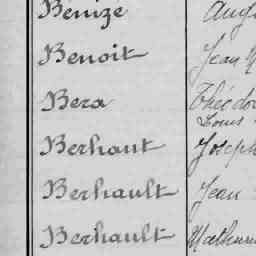 Benize
Benoit Jean
Bera Théodo
Louis
Berhaut Joseph
Berhault Jean
Berhault Mathurin